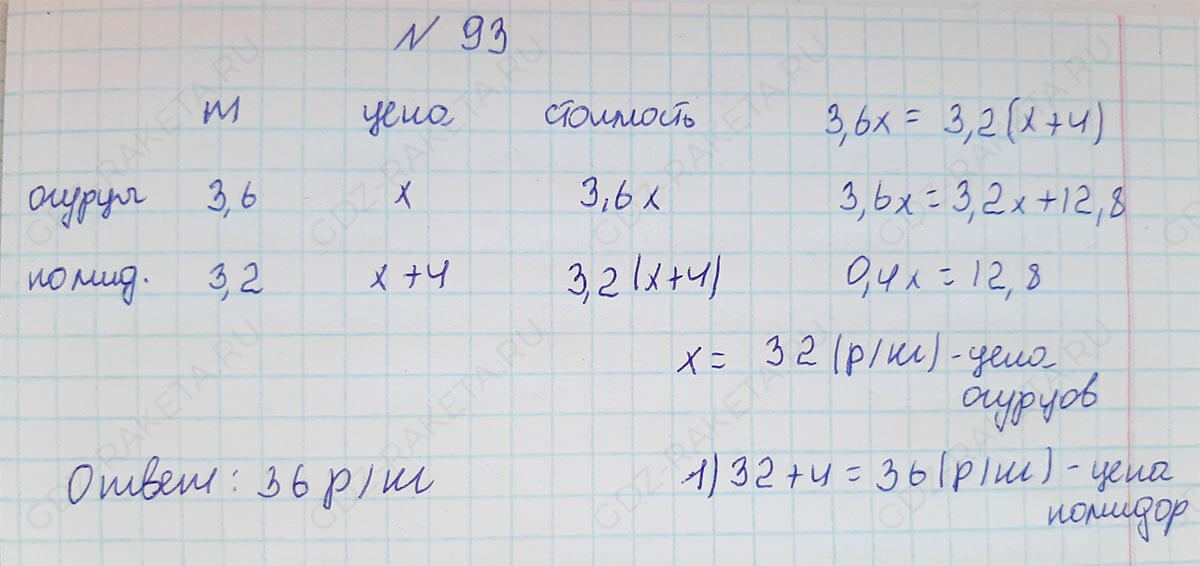 N 93
m цена стоимость 3,6x = 3,2(x+4)
огурцы 3,6 x 3,6x 3,6x = 3,2x+12,8
помид. 3,2 x+4 3,2(x+4) 0,4x = 12,8
x = 32 (р/кг) - цена
огурцов
Ответ: 36 р/кг 1) 32+4 = 36 (р/кг) - цена
помидор
GDZ-RAKETA.RU